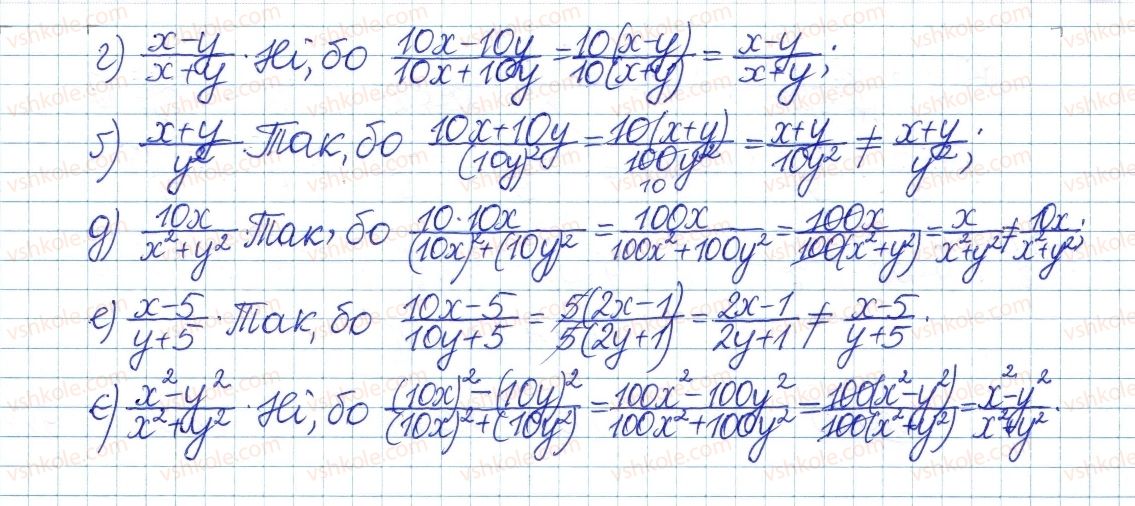 г) (x-y)/(x+y). Ні, бо (10x-10y)/(10x+10y) = 10(x-y)/10(x+y) = (x-y)/(x+y);
б) (x+y)/y². Так, бо (10x+10y)/(10y)² = 10(x+y)/100y² 10 = (x+y)/10y² ≠ (x+y)/y²;
д) 10x/(x²+y²). Так, бо 10·10x/((10x)²+(10y)²) = 100x/(100x²+100y²) = 100x/100(x²+y²) = x/(x²+y²) ≠ 10x/(x²+y²);
е) (x-5)/(y+5). Так, бо (10x-5)/(10y+5) = 5(2x-1)/5(2y+1) = (2x-1)/(2y+1) ≠ (x-5)/(y+5).
є) (x²-y²)/(x²+y²). Ні, бо ((10x)²-(10y)²)/((10x)²+(10y²) = (100x²-100y²)/(100x²+100y²) = 100(x²-y²)/100(x²+y²) = (x²-y²)/(x²+y²).
vshkole.com